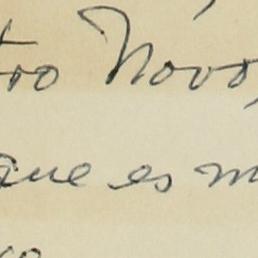 tro Novo,
que es m